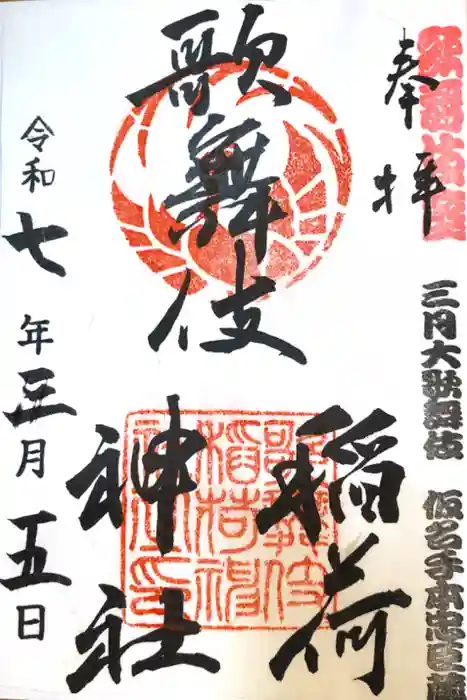 歌舞伎座
奉拝
三月大歌舞伎 仮名手本忠臣蔵
歌舞伎
稲荷
神社
歌舞伎稲荷神社印
令和七年三月五日